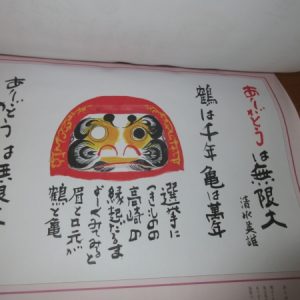 ありがとうは無限大
清水英雄
鶴は千年亀は萬年
選挙に
つきものの
高崎の
縁起だるま
よーくみてみると
眉と口元が
鶴と亀
ありがとうは無限大